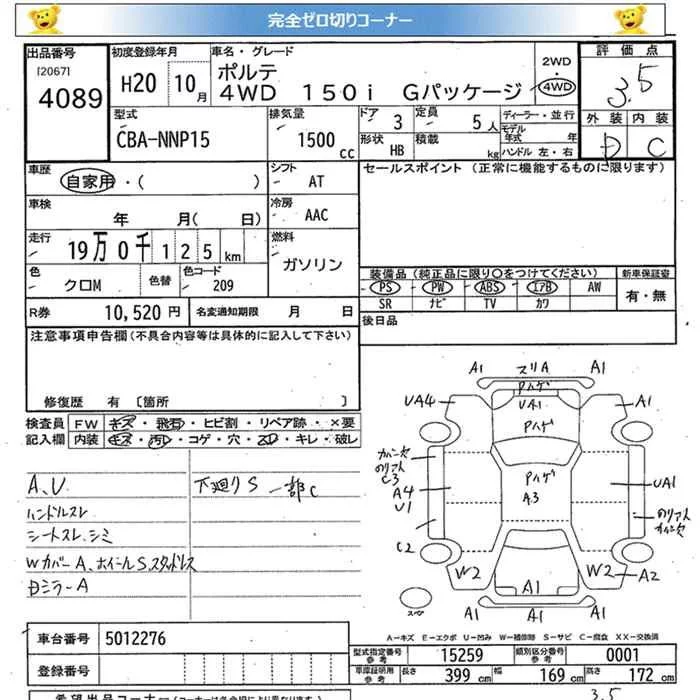 完全ゼロ切りコーナー
出品番号
[2067]
4089
初度登録年月
H20 10月
車名・グレード
ポルテ
4WD 150i Gパッケージ
2WD
・
4WD
評価点
3.5
外装 内装
D C
型式
CBA-NNP15
排気量
1500 cc
ドア 3
定員 5人
形状 HB
積載 kg
ディーラー・並行
モデル年式 年
ハンドル 左・右
車歴
自家用・( )
シフト
AT
セールスポイント (正常に機能するものに限ります)
車検
年 月( 日)
冷房
AAC
走行
19万0千125km
燃料
ガソリン
色
クロM
色替
色コード
209
装備品(純正品に限り〇をつけてください)
PS PW ABS エアB AW
SR ナビ TV カワ
新車保証書
有・無
R券 10,520円
名変通知期限 月 日
後日品
注意事項申告欄(不具合内容等は具体的に記入して下さい)
修復歴 有 [箇所 ]
検査員
記入欄
FW キズ・飛石・ヒビ割・リペア跡・×要
内装 キズ・汚レ・コゲ・穴・スレ・キレ・破レ
A、U
ハンドルスレ
シートスレ、シミ
Wカバー A、ホイール S、スタッドレス
Dミラー A
下廻り S 一部C
A1 スリA A1
Pハゲ
UA4 UA1 A1
Pハゲ
カバー欠
C3
Pハゲ
A4 A3 UA1
U1
C2
W2 A1 W2 A2
A1 A1 A1
スペア
A-キズ E-エクボ U-凹み W-補修跡 S-サビ C-腐食 XX-交換済
車台番号 5012276
登録番号
型式指定番号
参考
15259
類別区分番号
参考
0001
車庫証明用
参考
長さ 399 cm 幅 169 cm 高さ 172 cm
希望出品コーナー
3.5